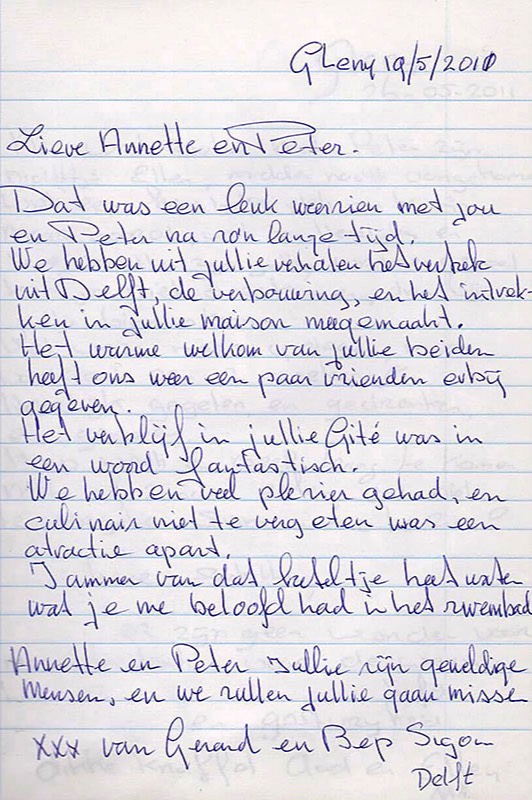 GLeny 19/5/2010
Lieve Annette en Peter.
Dat was een leuk weerzien met jou
en Peter na zon lange tijd.
We hebben uit jullie verhalen het vertrek
uit Delft, de verbouwing, en het intrek-
ken in jullie maison meegemaakt.
Het warme welkom van jullie beiden
heeft ons weer een paar vrienden erbij
gegeven.
Het verblijf in jullie Gité was in
een woord fantastisch.
We hebben veel plezier gehad, en
culinair niet te vergeten was een
atractie apart.
Jammer van dat keteltje heet water
wat je me beloofd had in het zwembad
Annette en Peter Jullie zijn geweldige
mensen, en we zullen jullie gaan misse
xxx van Gerard en Bep
Delft